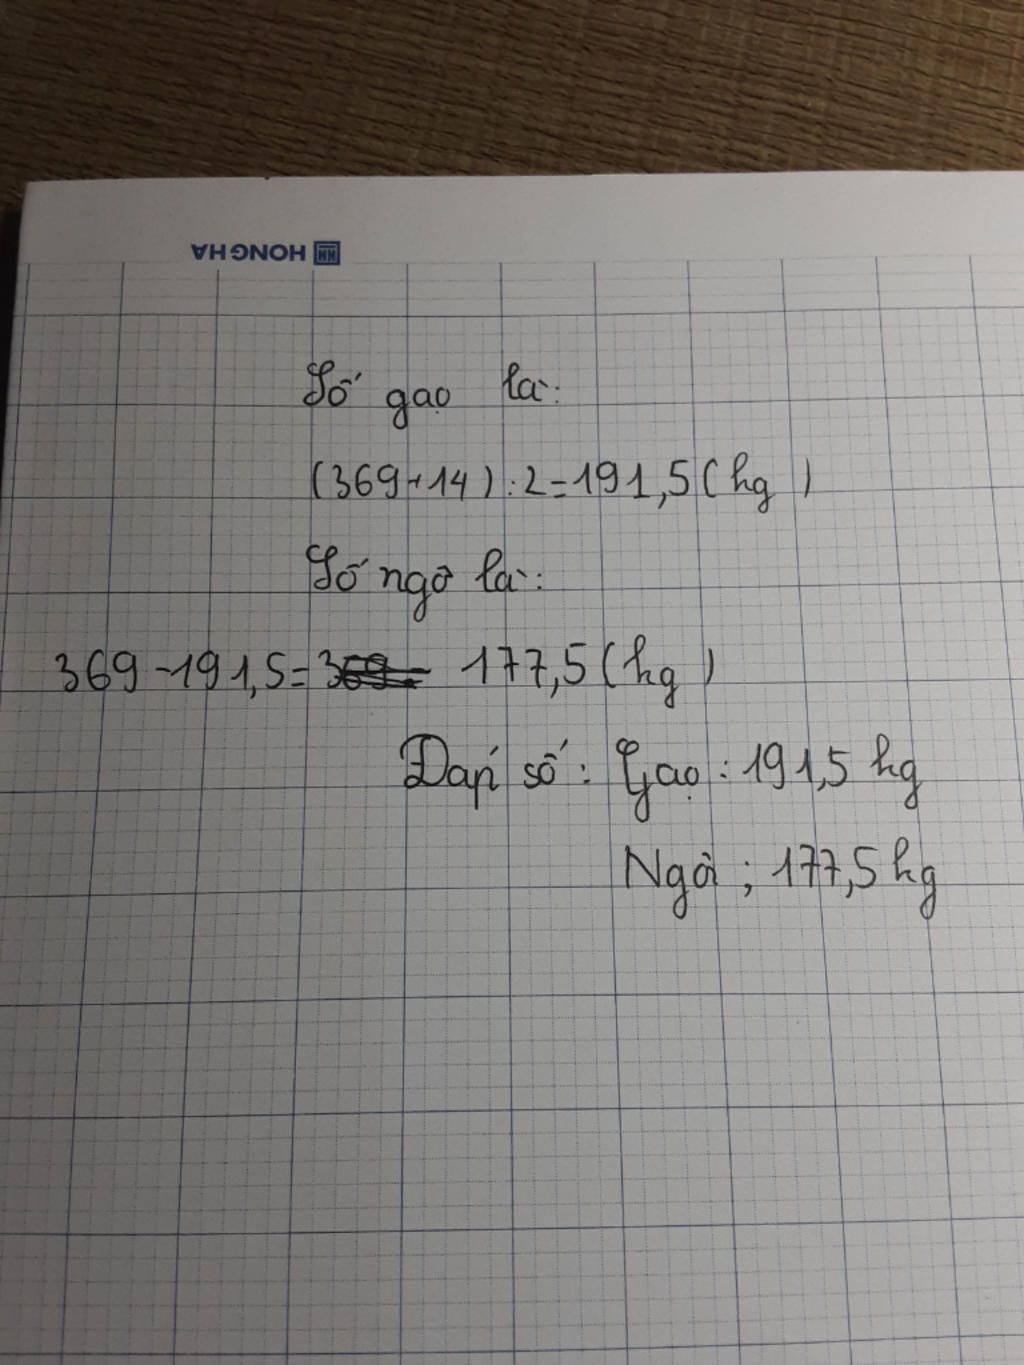 HONG HA
Số gạo là:
(369+14):2=191,5(kg)
Số ngô là:
369-191,5= 177,5(kg)
Đáp số: Gạo: 191,5 kg
Ngô; 177,5kg